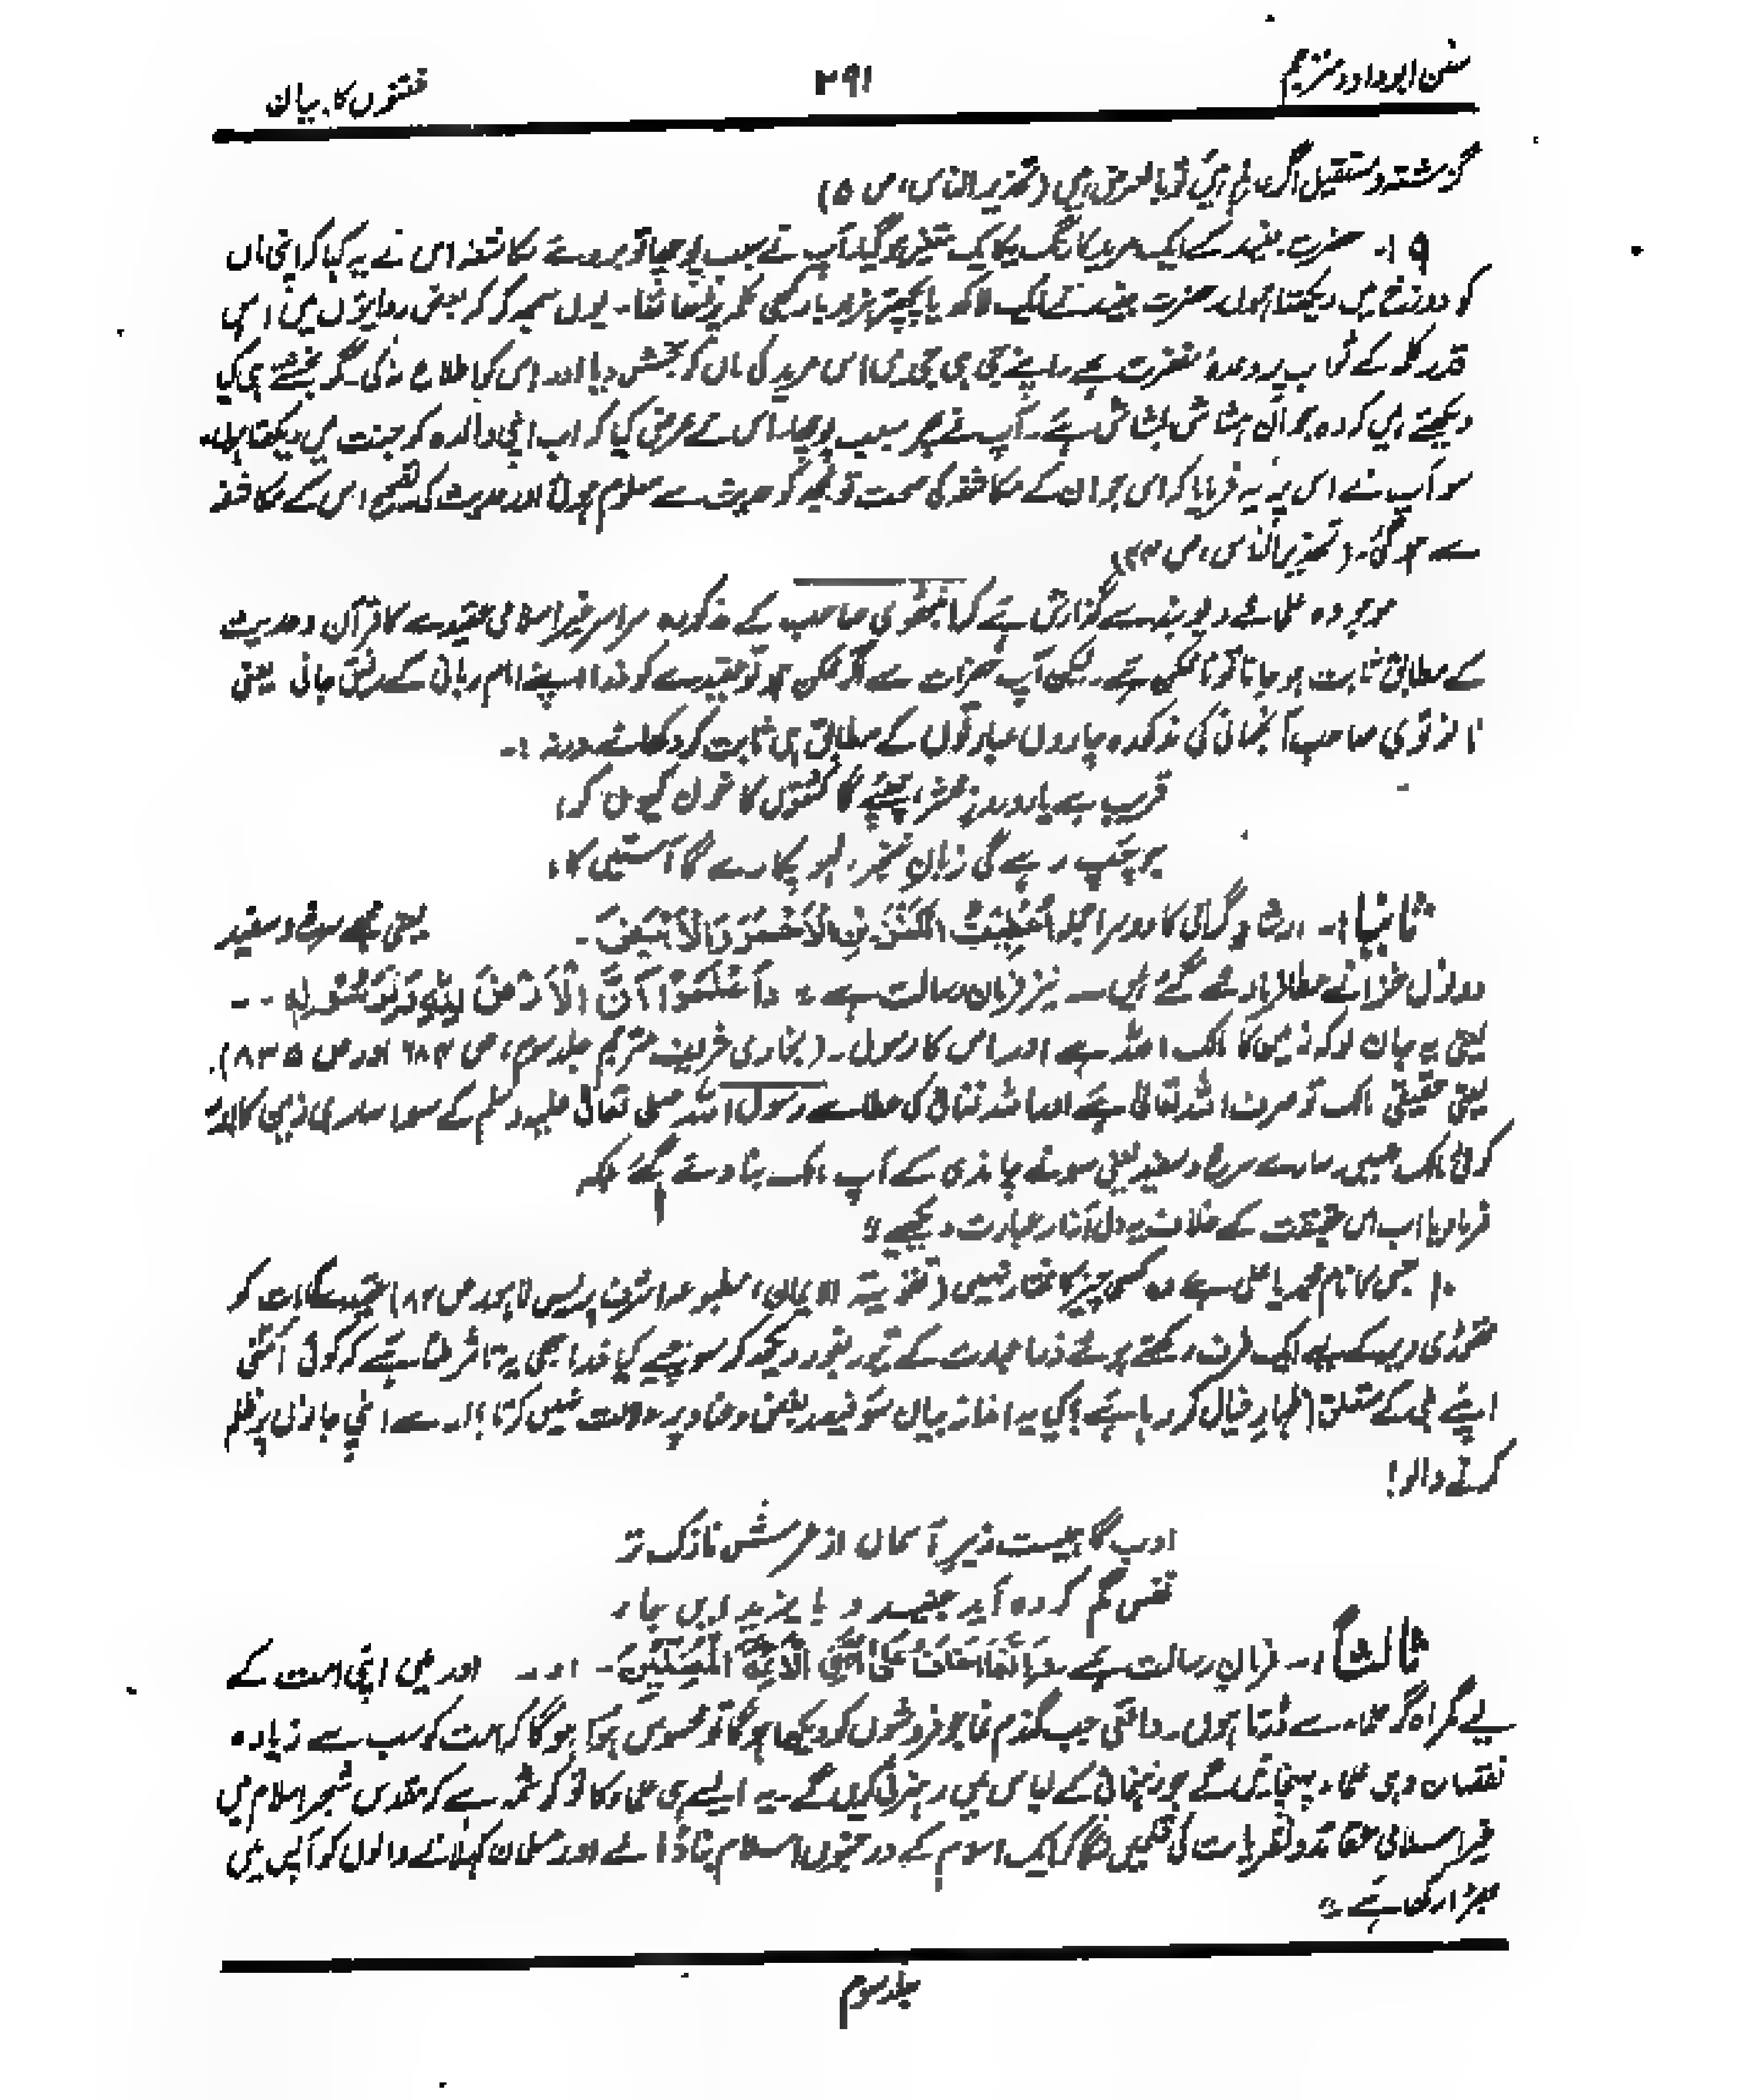 سنن ابوداود مترجم
۲۹۱
فتنوں کا بیان
گزشتہ و مستقبل اگر ہیں تو بالعرض ہیں (تحذیر الناس، ص ۵)
۱۹۔ حضرت جنید کے ایک مرید کا رنگ یکایک متغیر ہو گیا۔ آپ نے سبب پوچھا تو بروئے مکاشفہ اس نے یہ کہا کہ اپنی ماں
کو دوزخ میں دیکھتا ہوں۔ حضرت جنید نے ایک لاکھ یا پچھتر ہزار بار کبھی کلمہ پڑھا تھا۔ یوں سمجھ کر کہ بعض روایتوں میں اسی
قدر کلمہ کے ثواب پر وعدۂ مغفرت ہے۔ اپنے جی ہی جی میں اس مرید کی ماں کو بخش دیا اور اس کو اطلاع نہ کی۔ مگر بخشتے ہی کیا
دیکھتے ہیں کہ وہ جوان ہشاش بشاش ہے۔ آپ نے پھر سبب پوچھا۔ اس نے عرض کیا کہ اب اپنی والدہ کو جنت میں دیکھتا ہوں۔
سو آپ نے اس پر یہ فرمایا کہ اس جوان کے مکاشفہ کی صحت تو مجھ کو حدیث سے معلوم ہوئی اور حدیث کی تصحیح اس کے مکاشفہ
سے ہو گئی۔ (تحذیر الناس، ص ۴۴)
موجودہ علمائے دیوبند سے گزارش ہے کہ صاحب کے مذکورہ سراسر غیر اسلامی عقیدے کا قرآن و حدیث
کے مطابق ثابت ہو جانا تو ناممکن ہے۔ لیکن آپ حضرات سے اگر ممکن ہو تو عقیدے کو ذرا اپنے امام ربانی کے رفیق جانی یعنی
نانوتوی صاحب آنجہانی کی مذکورہ چاروں عبارتوں کے مطابق ہی ثابت کر دکھائیے ورنہ :-
قریب ہے یارو روز محشر، چھپے گا کشتوں کا خون کیوں کر،
جو چپ رہے گی زبان خنجر، لہو پکارے گا آستیں کا،
ثانیاً :۔ ارشاد گرامی کا دوسرا جملہ اُعْطِيتُ الْكَنْزَيْنِ الْاَحْمَرَ وَالْاَبْيَضَ۔ یعنی مجھے سرخ و سفید
دونوں خزانے عطا فرما دئیے گئے ہیں۔ نیز فرمان رسالت ہے : وَاعْلَمُوْا اَنَّ الْاَرْضَ لِلّٰهِ وَرَسُوْلِهٖ ۔۔
یعنی یہ جان لو کہ زمین کا مالک اللہ ہے اور اس کا رسول۔ (بخاری شریف مترجم جلد سوم، ص ۶۸۴ اور ص ۸۳۵)۔
یعنی حقیقی مالک تو صرف اللہ تعالیٰ ہے اور اللہ تعالیٰ کی عطا سے رسول اللہ صلی تعالیٰ علیہ وسلم کے سوا ساری زمین کا اور
کوئی مالک نہیں۔ سارے سرخ و سفید یعنی سونے چاندی کے آپ مالک بنا دئے گئے بلکہ
فرما دیا اب اس حقیقت کے خلاف یہ دل آزار عبارت دیکھیے:
۱۰ جس کا نام محمد یا علی ہے وہ کسی چیز کا مختار نہیں (تقویۃ الایمان، مطبوعہ اشرف پریس لاہور ص ۸۲) عقیدے کی بات کو
تھوڑی دیر کے لیے ایک طرف رکھتے ہوئے ذرا عبارت کے تیور بغور دیکھ کر سوچیے کیا ذرا بھی یہ تاثر ملتا ہے کہ کوئی اُمتی
اپنے نبی کے متعلق اظہار خیال کر رہا ہے؟ کیا یہ انداز بیان سو فیصد بغض و عناد پر دلالت نہیں کرتا؟ اے اپنی جانوں پر ظلم
کرنے والو!
ادب گاہیست زیر آسماں از عرش نازک تر
نفس گم کردہ آید جنید و بایزید ایں جا
ثالثاً :۔ فرمان رسالت ہے وَاِنَّمَا اَخَافُ عَلٰى اُمَّتِى الْاَئِمَّةَ الْمُضِلِّيْنَ۔ اور میں اپنی امت کے
لیے گمراہ گر علماء سے ڈرتا ہوں۔ واقعی جب گندم نما جو فروشوں کو دیکھا ہوگا تو محسوس ہوا ہوگا کہ امت کو سب سے زیادہ
نقصان وہی علماء پہنچائیں گے جو رہنمائی کے لباس میں رہزنی کریں گے۔ یہ ایسے ہی علماء کا تو کرشمہ ہے کہ مقدس شجر اسلام میں
غیر اسلامی عقائد و نظریات کی قلمیں لگا کر ایک اسلام کے درجنوں اسلام بنا ڈالے اور مسلمان کہلانے والوں کو آپس میں
بھڑا رکھا ہے۔
جلد سوم